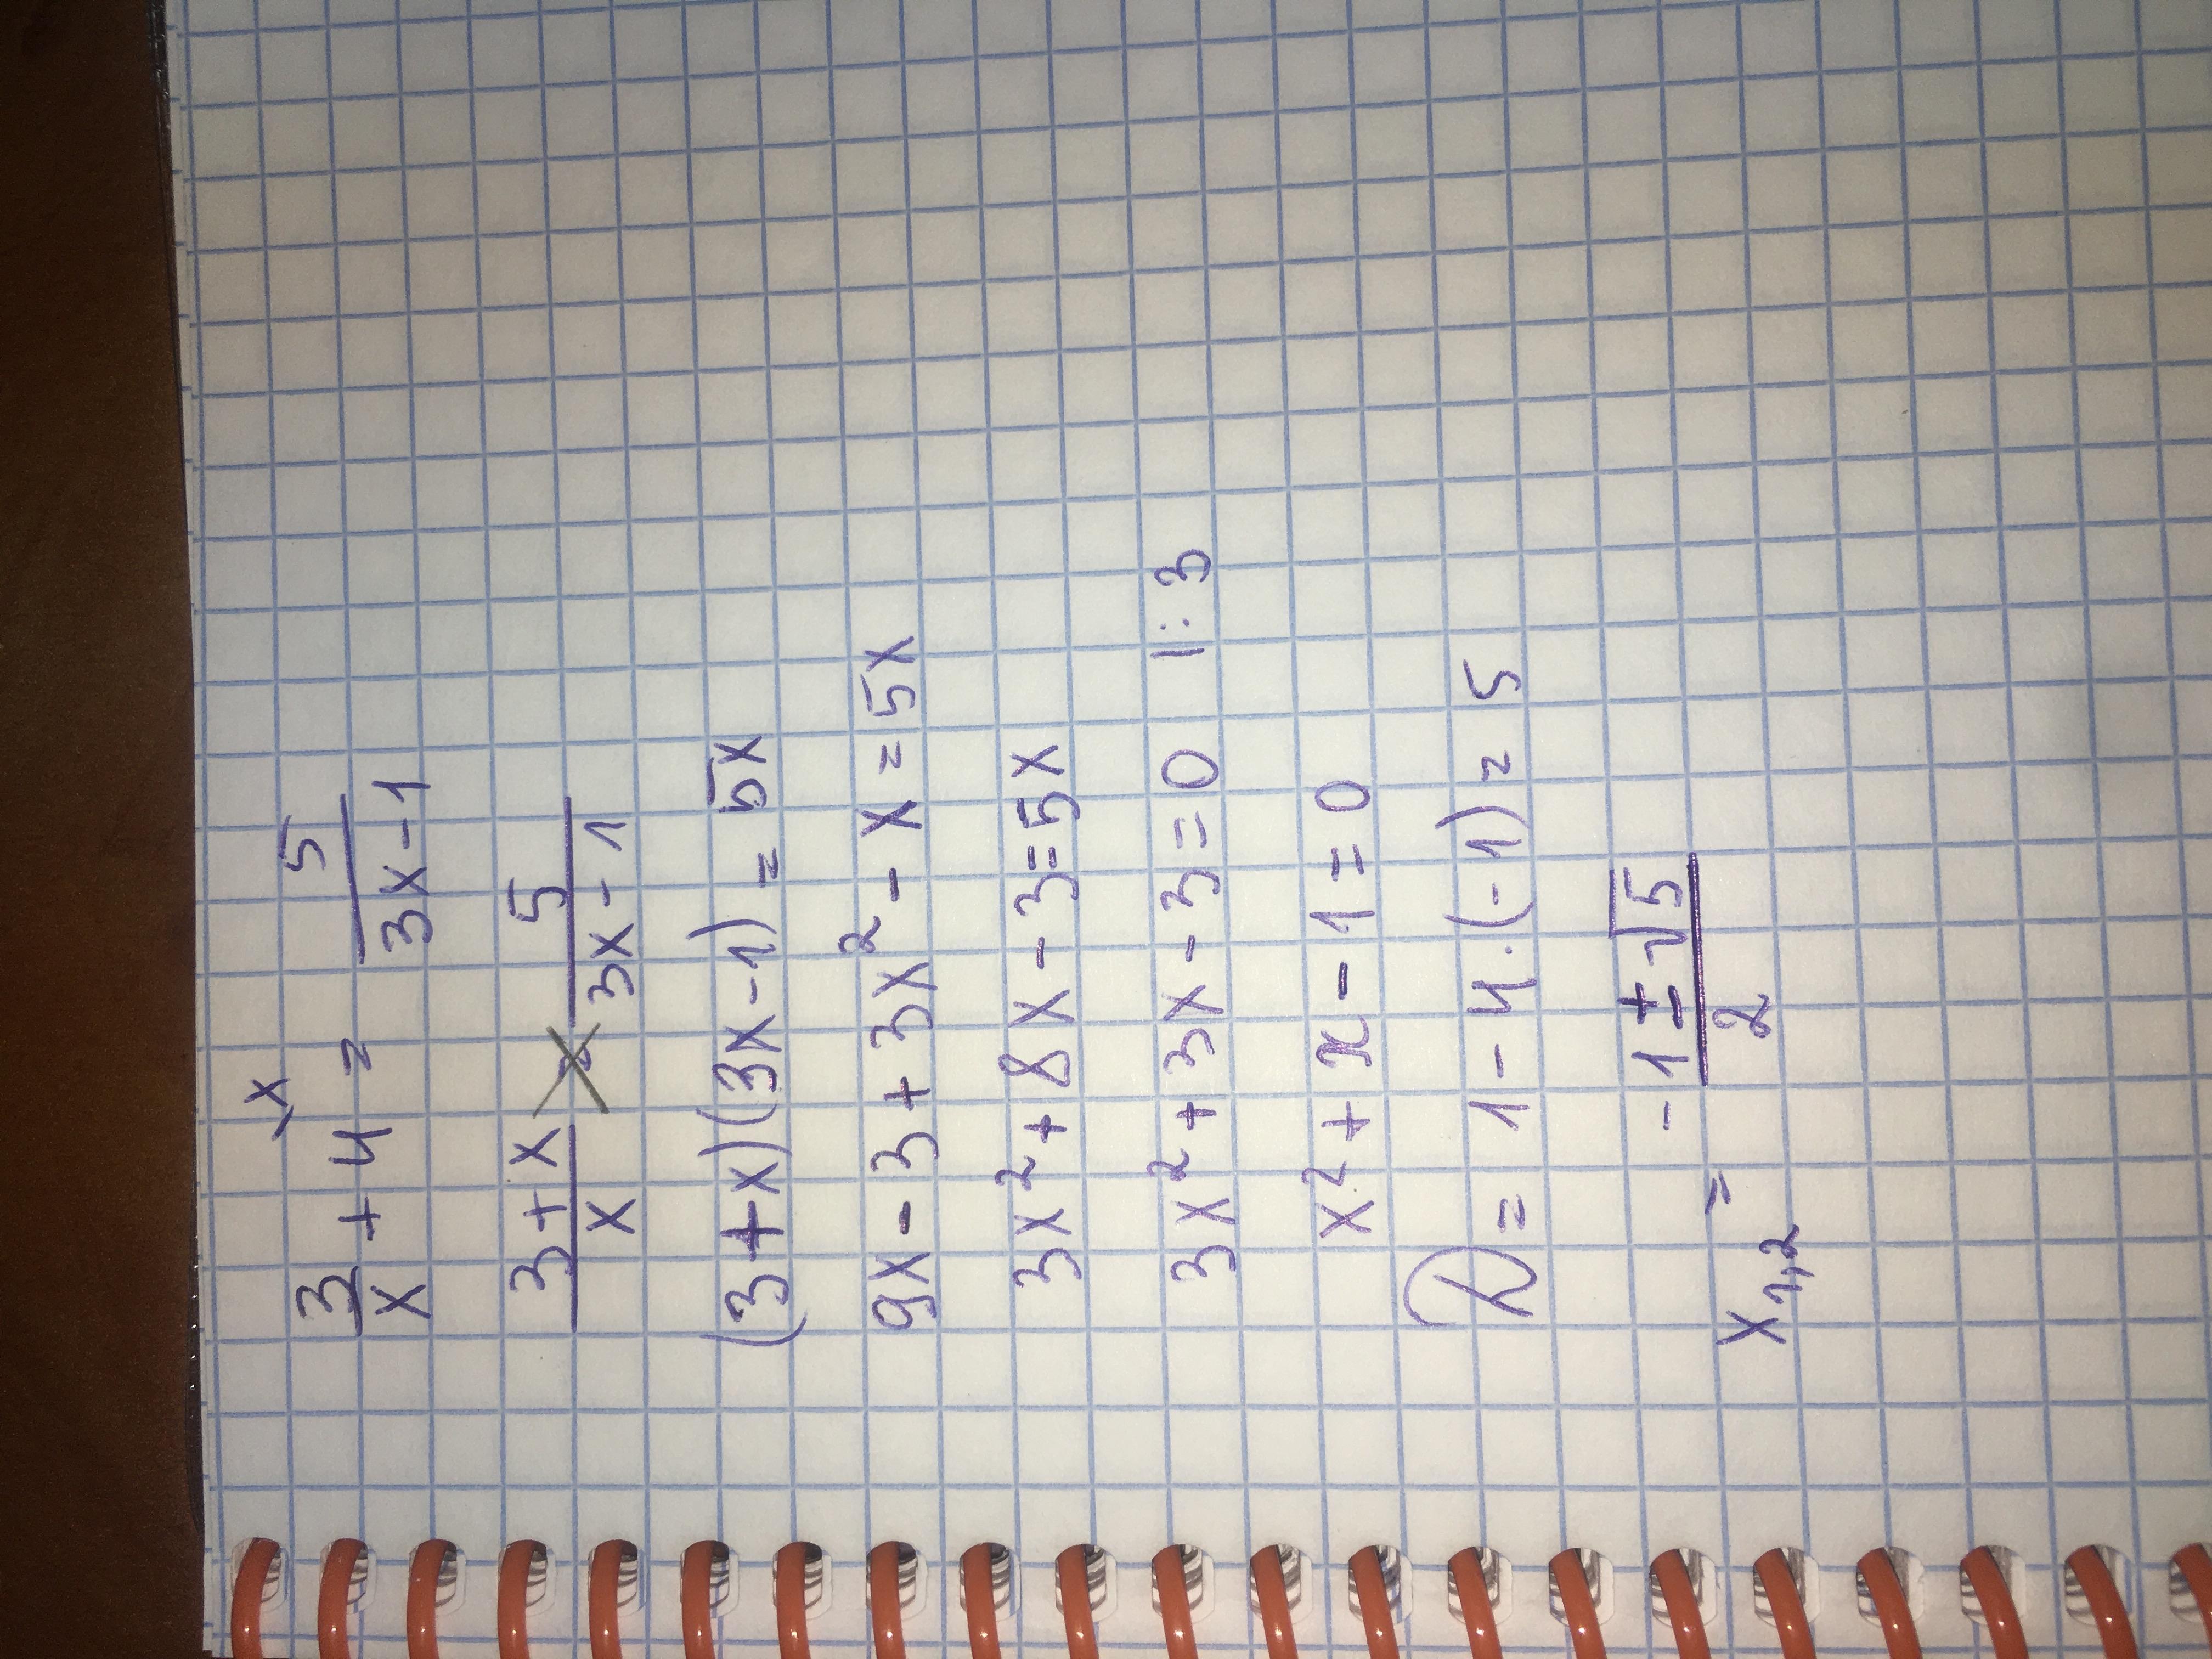 3/x + 4 \x = 5/(3x-1)
(3+x)/x = 5/(3x-1)
(3+x)(3x-1) = 5x
9x-3+3x²-x=5x
3x²+8x-3=5x
3x²+3x-3=0 |:3
x²+x-1=0
D=1-4·(-1)=5
x1,2 = (-1±√5)/2